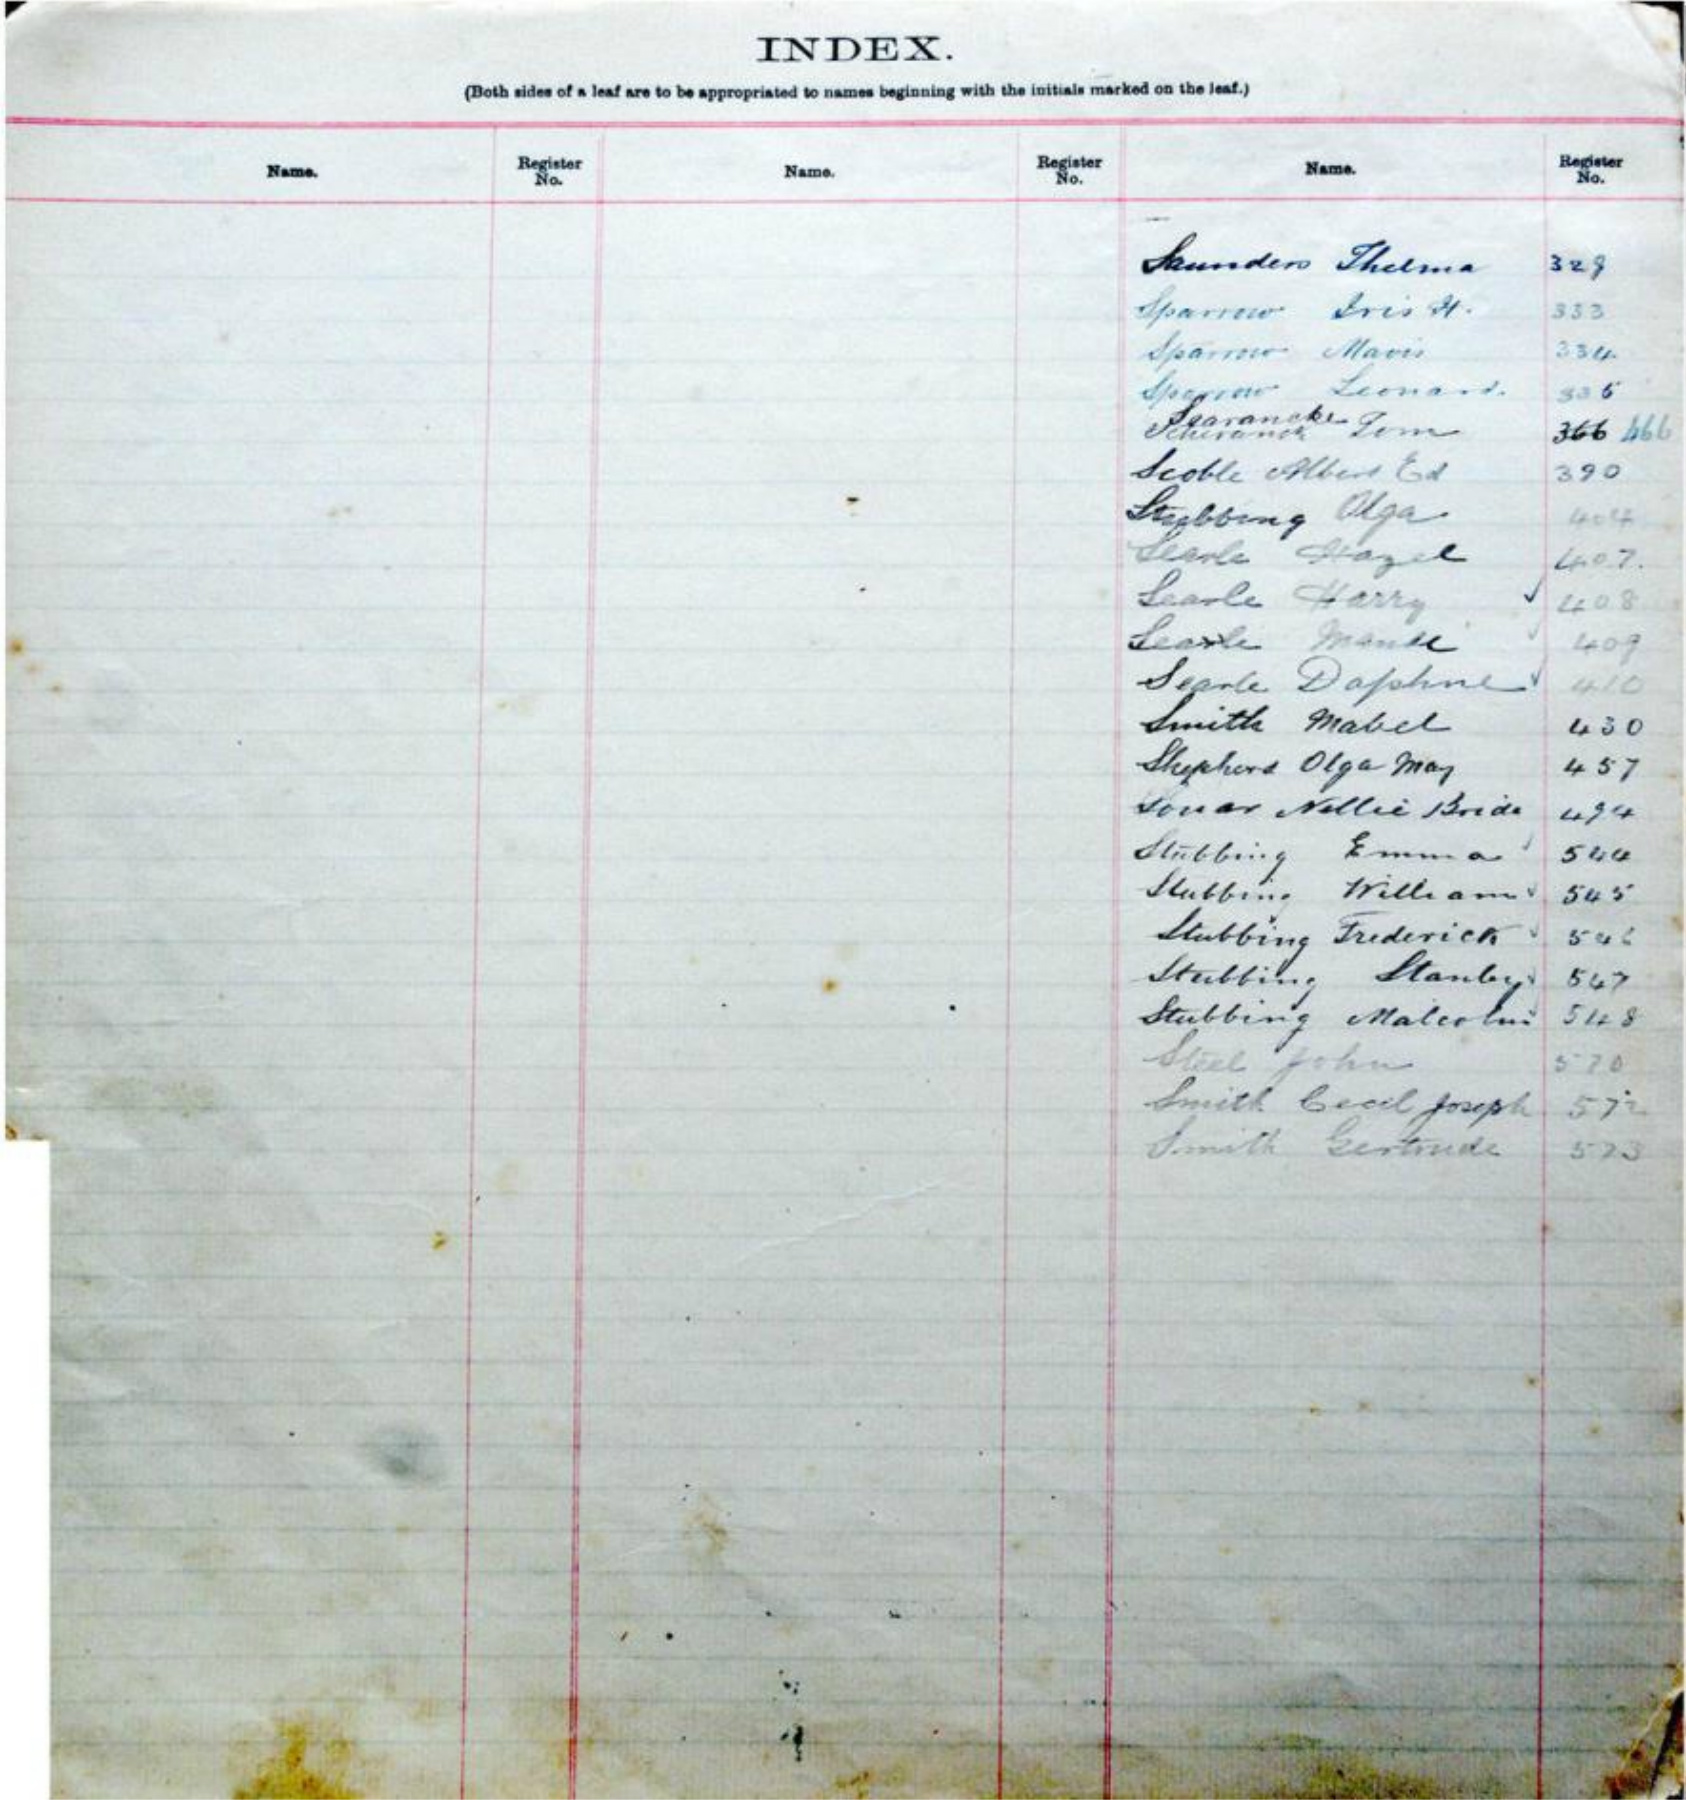 INDEX.
(Both sides of a leaf are to be appropriated to names beginning with the initials marked on the leaf.)
Name. Register No. Name. Register No. Name. Register No.
Saunders Thelma 329
Sparrow Iris H. 333
Sparrow Mavis 334
Sparrow Leonard. 335
Searancke
Tom 366 466
Scoble Albert Ed 390
Stubbing Olga 404
Searle Hazel 407.
Searle Harry ✓ 408
Searle Maude ✓ 409
Searle Daphne ✓ 410
Smith Mabel 430
Shepherd Olga May 457
Nellie Bride 494
Stubbing Emma ✓ 544
Stubbing William ✓ 545
Stubbing Frederick ✓ 546
Stubbing Stanley ✓ 547
Stubbing Malcolm 548
Steel John 570
Smith Cecil Joseph 572
Smith Gertrude 573